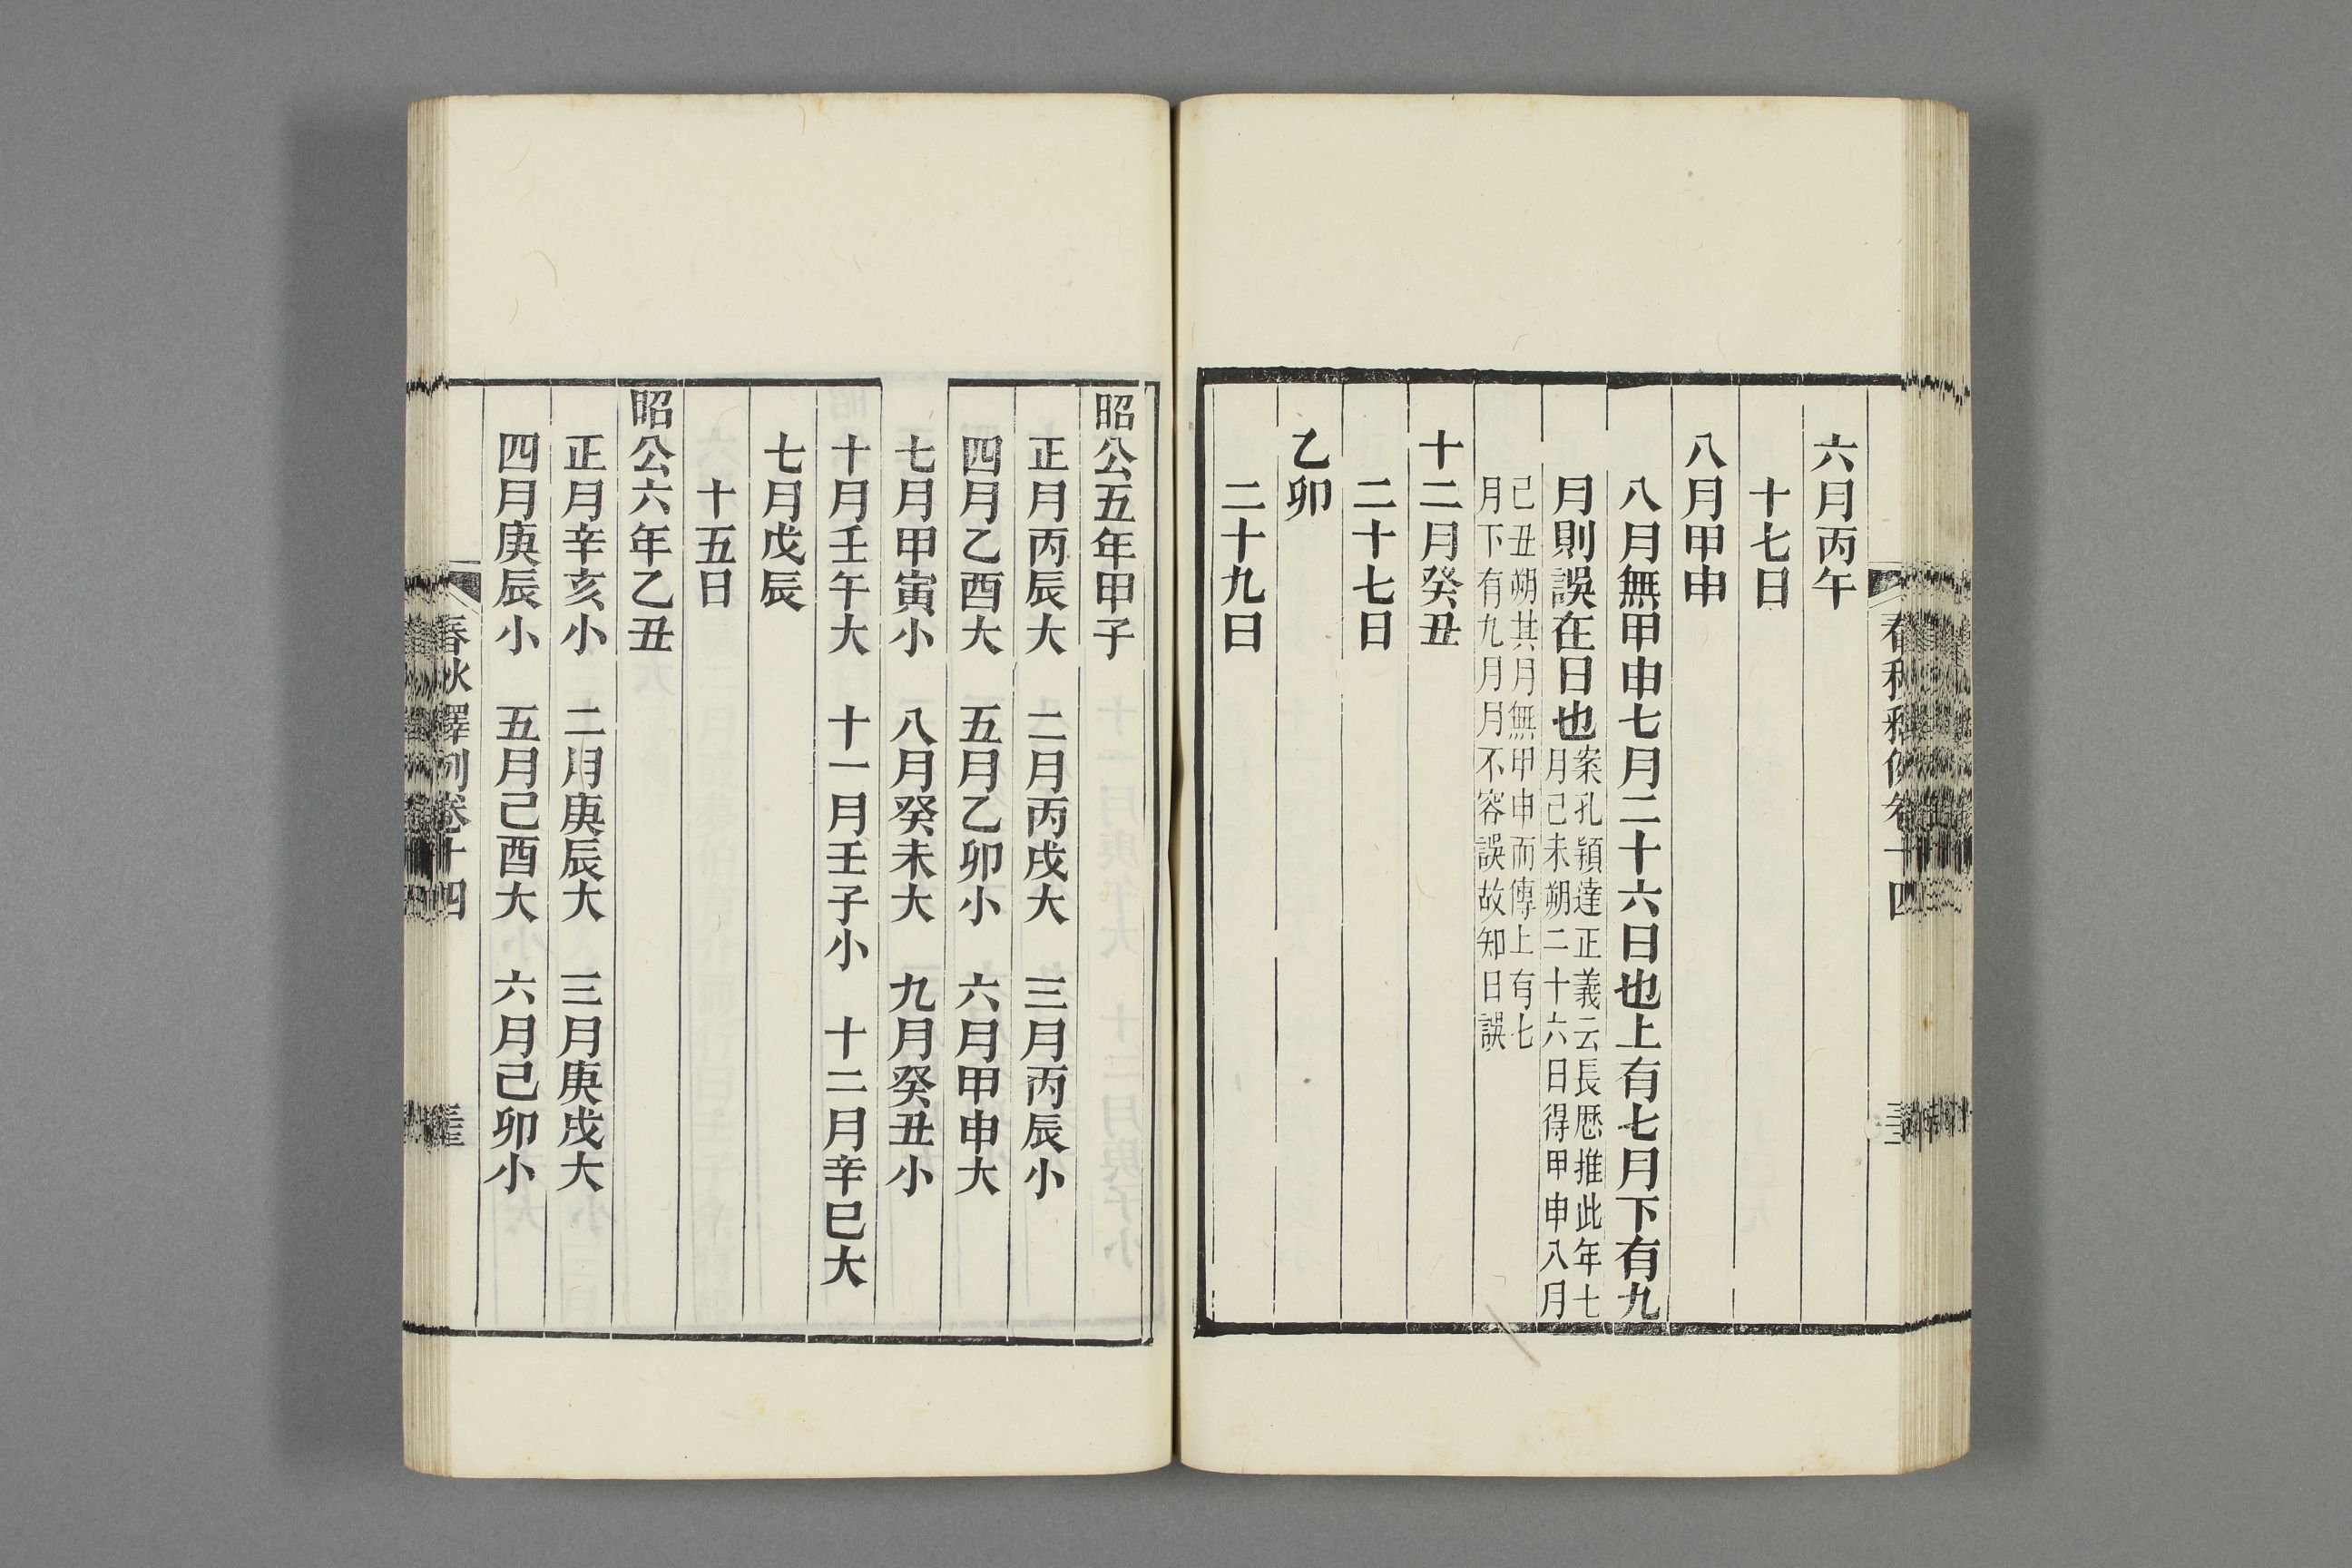 六月丙午
十七日
八月甲申
八月無甲申七月二十六日也上有七月下有九
月則誤在日也案孔穎達正義云長厯推此年七
月己未朔二十六日得甲申八月
己丑朔其月無甲申而傳上有七
月下有九月月不容誤故知日誤
十二月癸丑
二十七日
乙卯
二十九日
昭公五年甲子
正月丙辰大　二月丙戌大　三月丙辰小
四月乙酉大　五月乙卯小　六月甲申大
七月甲寅小　八月癸未大　九月癸丑小
十月壬午大　十一月壬子小　十二月辛巳大
七月戊辰
十五日
昭公六年乙丑
正月辛亥小　二月庚辰大　三月庚戌大
四月庚辰小　五月己酉大　六月己卯小
春秋釋例卷十四